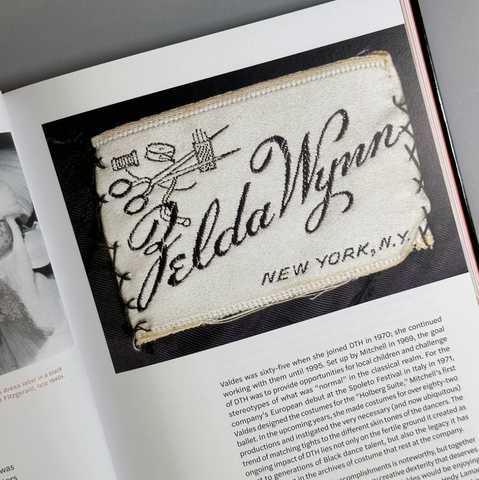 Zelda Wynn
NEW YORK, N.Y.
dress label in a black
Fitzgerald, late 1940s.
was
Valdes was sixty-five when she joined DTH in 1970; she continued
working with them until 1995. Set up by Mitchell in 1969, the goal
of DTH was to provide opportunities for local children and challenge
stereotypes of what was "normal" in the classical realm. For the
company's European debut at the Spoleto Festival in Italy in 1971,
Valdes designed the costumes for the "Holberg Suite," Mitchell's first
ballet. In the upcoming years, she made costumes for over eighty-two
productions and instigated the very necessary (and now ubiquitous)
trend of matching tights to the different skin tones of the dancers. The
ongoing impact of DTH lies not only on the fertile ground it created as
to generations of Black dance talent, but also the legacy it has
in the archives of costume that rest at the company.
accomplishments is noteworthy, but together
creative dexterity that deserves
would be enjoying
Hedy Lamarr